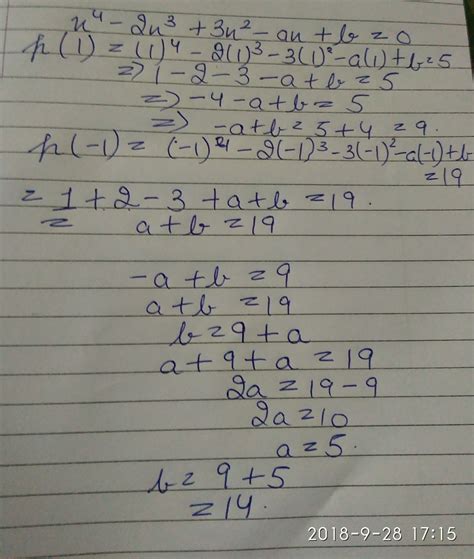 x⁴ - 2x³ + 3x² - ax + b = 0
p(1) = (1)⁴ - 2(1)³ - 3(1)² - a(1) + b = 5
=> 1 - 2 - 3 - a + b = 5
=> -4 - a + b = 5
=> -a + b = 5 + 4 = 9.
p(-1) = (-1)⁴ - 2(-1)³ - 3(-1)² - a(-1) + b
= 19
= 1 + 2 - 3 + a + b = 19.
= a + b = 19
-a + b = 9
a + b = 19
b = 9 + a
a + 9 + a = 19
2a = 19 - 9
2a = 10
a = 5.
b = 9 + 5
= 14.
2018-9-28 17:15